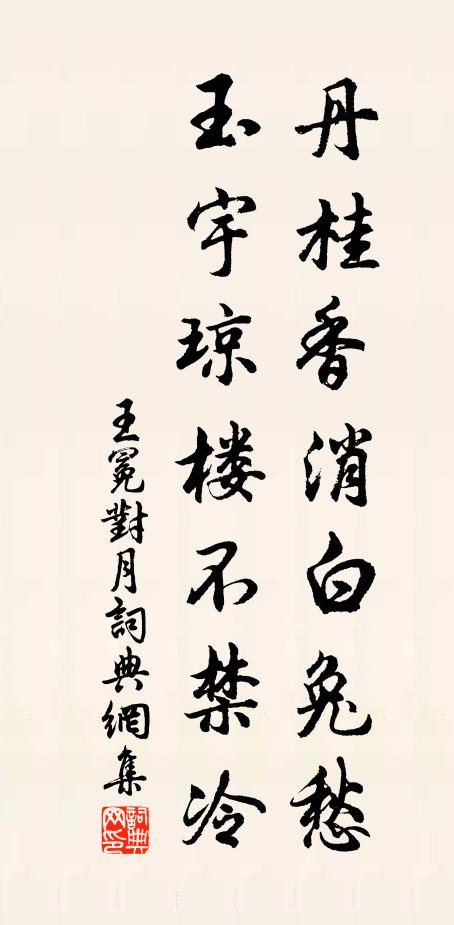 丹桂香消白兔愁
玉宇琼楼不禁冷
王冕對月詞典網集
詞典网印